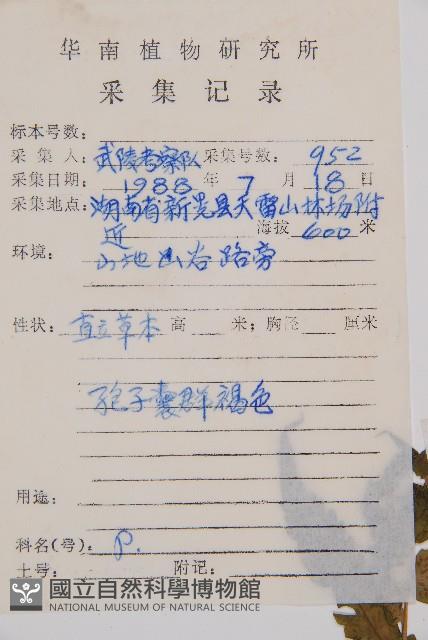 华南植物研究所
采集记录
标本号数：
采集人：武陵考察队 采集号数：952
采集日期：1988 年 7 月 18 日
采集地点：湖南省新晃县天雷山林场附
近 海拔 600 米
环境：山地山谷路旁
性状：直立草本 高 米；胸径 厘米
孢子囊群褐色
用途：
科名(号)：P.
土号： 附记：
國立自然科學博物館
NATIONAL MUSEUM OF NATURAL SCIENCE